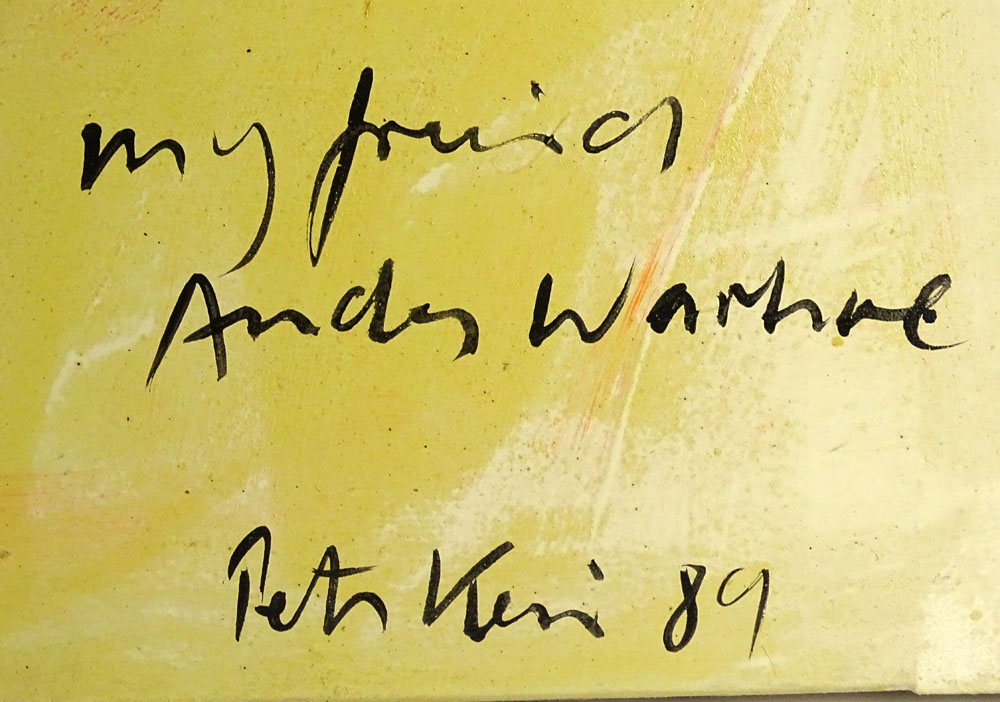 my friend
Andy Warhol
Peter Keil 89